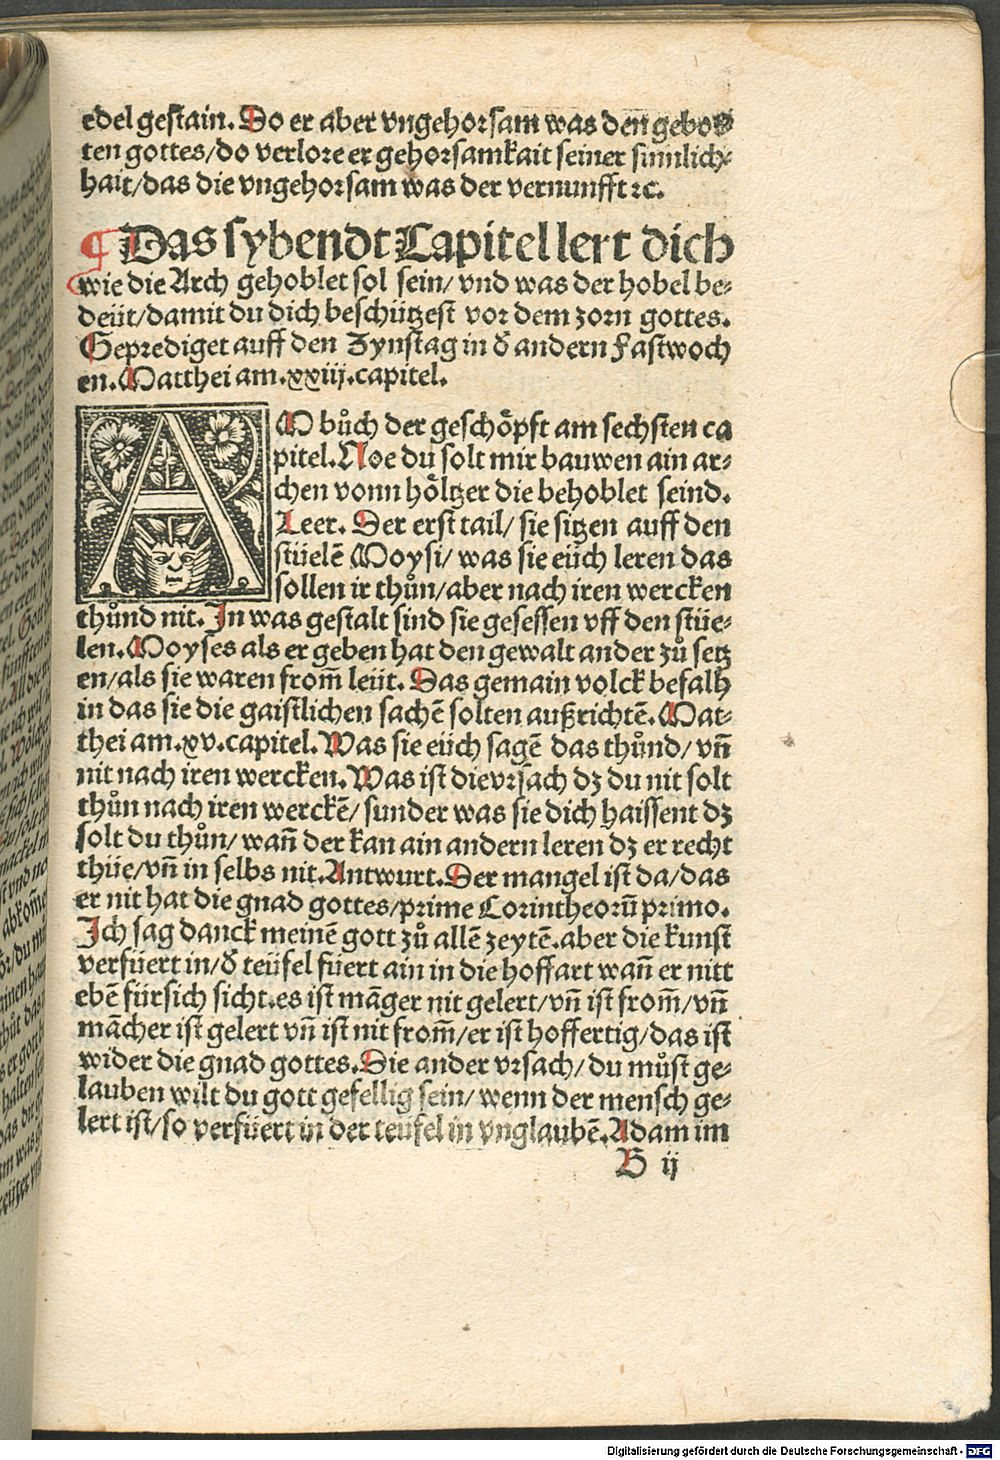 edel gestain. Do er aber vngehorsam was den gebot
ten gottes/do verlore er gehorsamkait seiner sinnlich-
hait/das die vngehorsam was der vernunfft ꝛc.
¶ Das sybendt Capitel lert dich
wie die Arch gehoblet sol sein/ vnd was der hobel be-
deüt/damit du dich beschützest vor dem zorn gottes.
Geprediget auff den Zynstag in d̕ andern Fastwoch
en. Matthei am .xxiij. capitel.
AM bůch der geschöpft am sechsten ca
pitel. Noe du solt mir bauwen ain ar-
chen vonn höltzer die behoblet seind.
Leer. Der erst tail/ sie sitzen auff den
stüelē Moysi/ was sie eüch leren das
sollen ir thůn/aber nach iren wercken
thůnd nit. In was gestalt sind sie gesessen vff den stüe-
len. Moyses als er geben hat den gewalt ander zů setz
en/als sie waren from̄ leüt. Das gemain volck befalh
in das sie die gaistlichen sachē solten außrichtē. Mat-
thei am .xv. capitel. Was sie eüch sagē das thůnd/ vn̄
nit nach iren wercken. Was ist die vrsach dz du nit solt
thůn nach iren werckē/ sunder was sie dich haissent dz
solt du thůn/ wan̄ der kan ain andern leren dz er recht
thüe/vn̄ in selbs nit. Antwurt. Der mangel ist da/das
er nit hat die gnad gottes/prime Corintheorū primo.
Ich sag danck meinē gott zů allē zeytē. aber die kunst
verfüert in/d̕ teüfel füert ain in die hoffart wan̄ er nitt
ebē für sich sicht. es ist māger nit gelert/vn̄ ist from̄/vn̄
mācher ist gelert vn̄ ist nit from̄/er ist hoffertig/das ist
wider die gnad gottes. Die ander vrsach/ du můst ge-
lauben wilt du gott gefellig sein/ wenn der mensch ge-
lert ist/so verfüert in der teufel in vnglaubē. Adam im
B ij
Digitalisierung gefördert durch die Deutsche Forschungsgemeinschaft - DFG